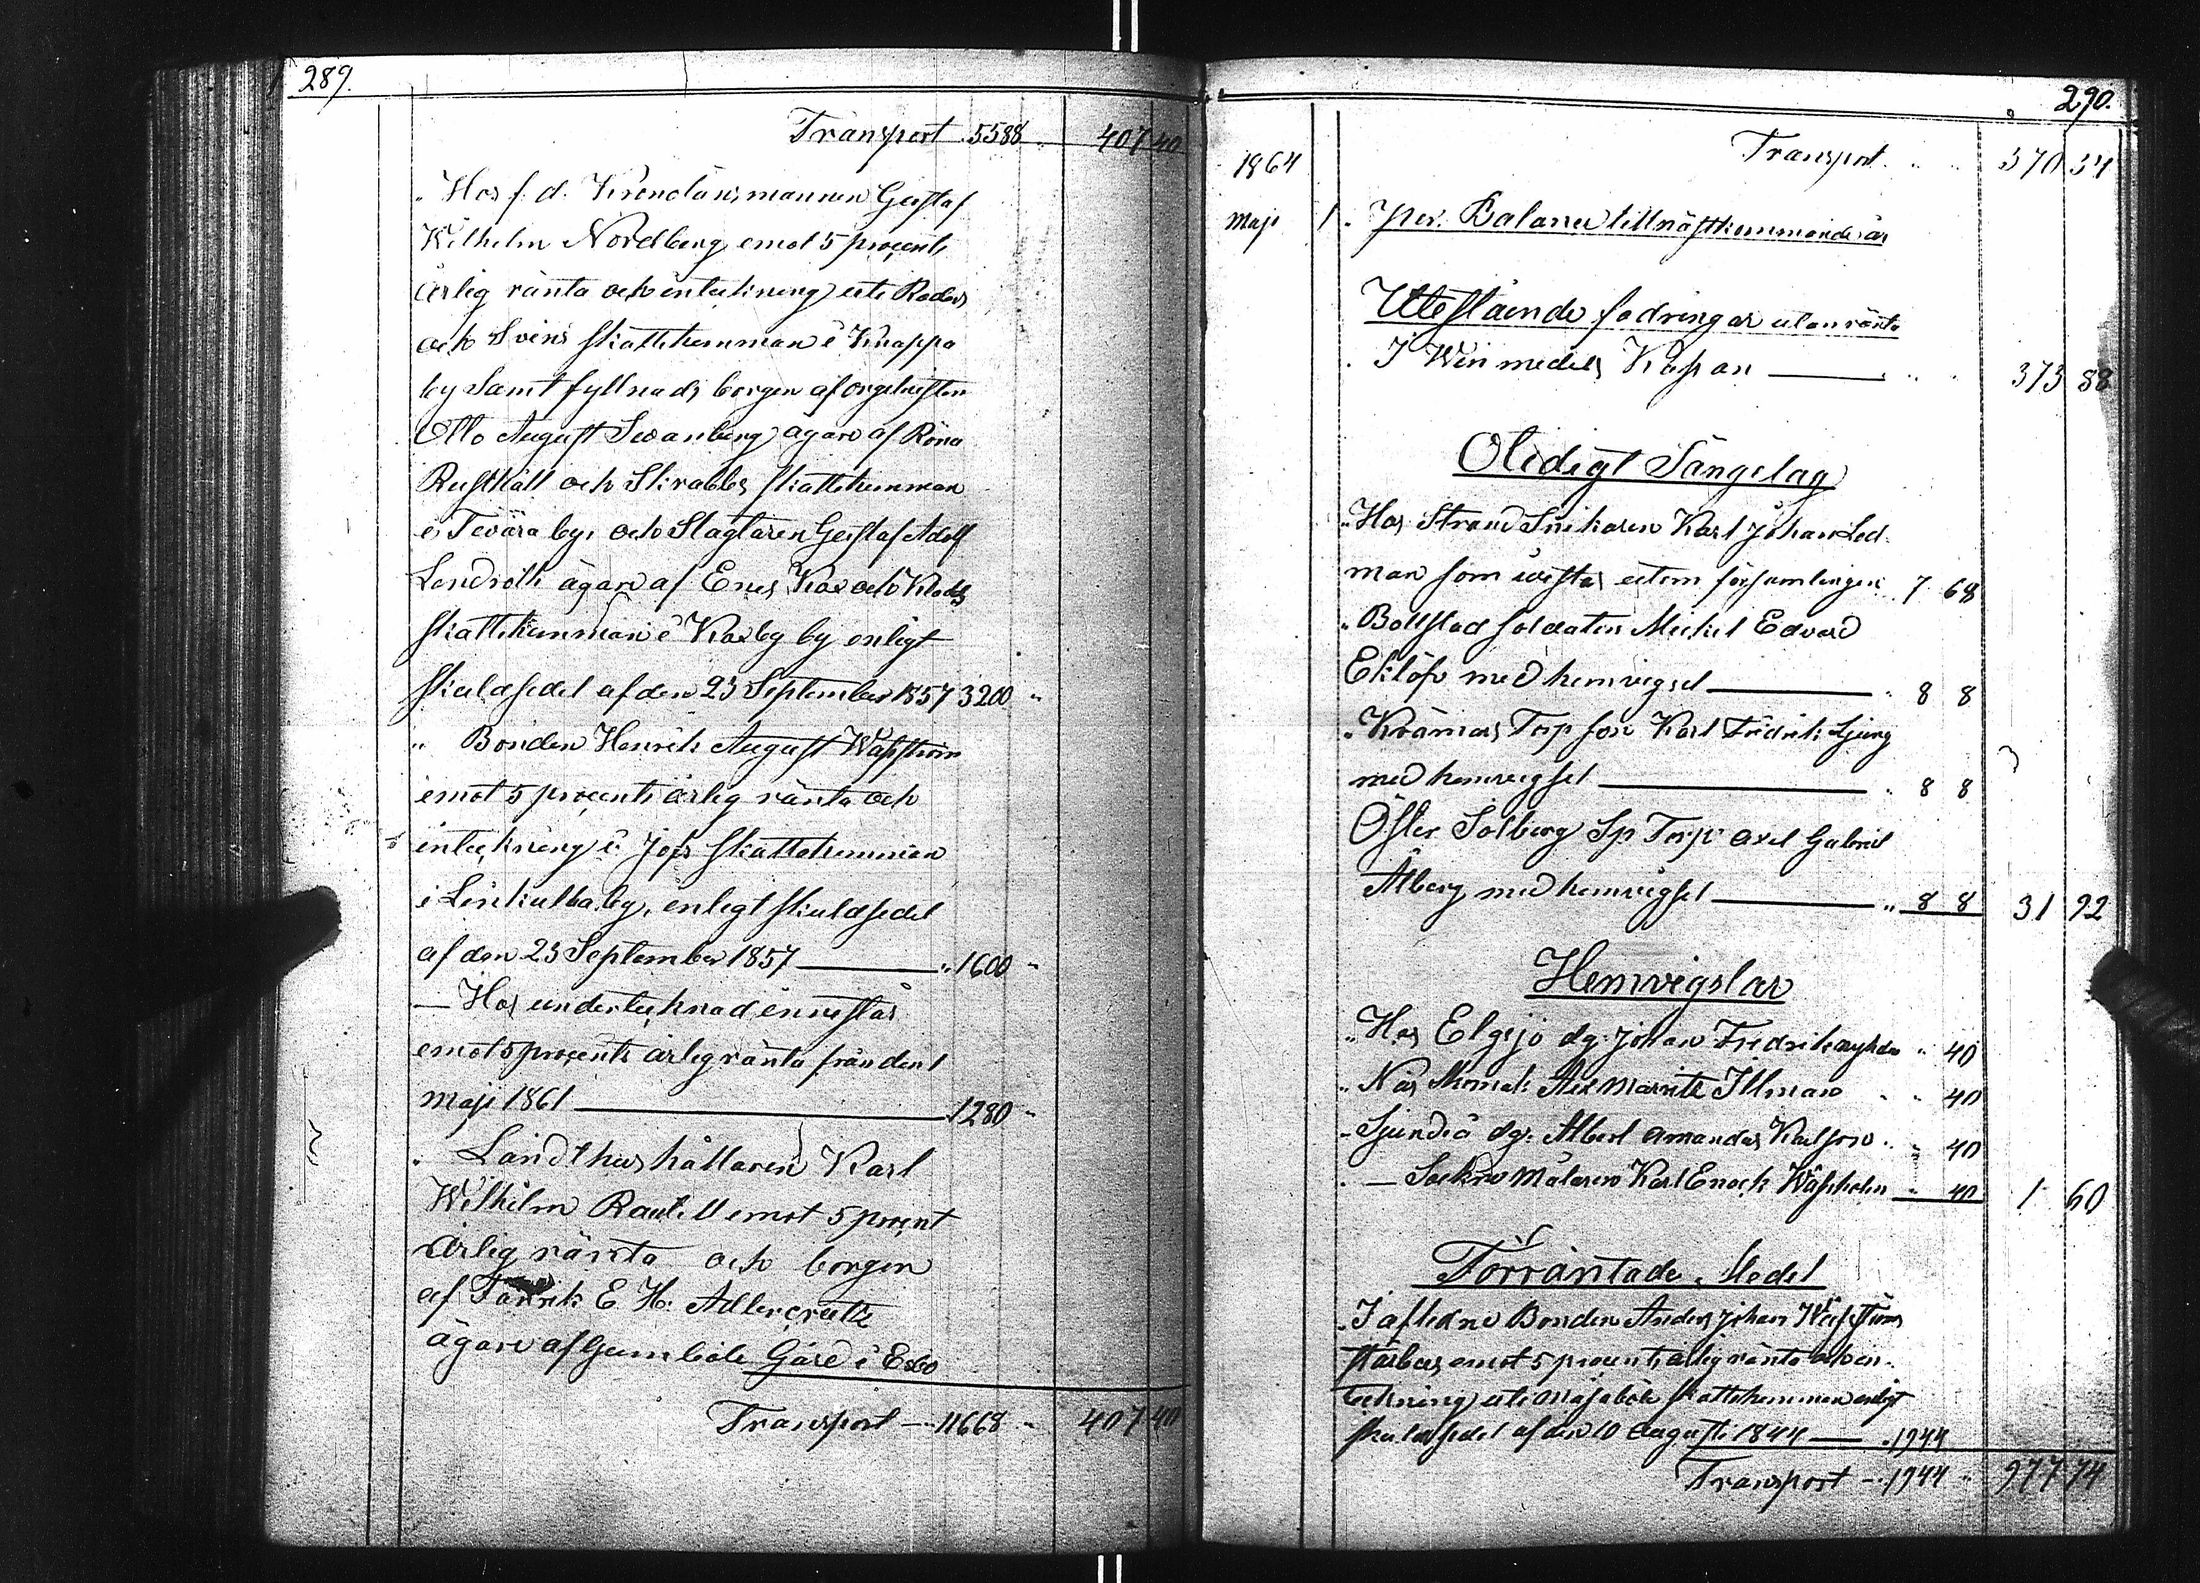 289.
Transport 5588 " 407 40
" Hos f. d. Kronolänsmannen Gustaf
Wilhelm Nordberg emot 5 procents
årlig ränta och inteckning uti Rodas
och Svens skattehemman i Knappa
by samt fyllnads borgen af orgelnisten
Otto August Swanberg ägare af Röna
Rusthåll och Skrabbs skattehemman
i Tevära by, och Slagtaren Gustaf Adolf
Londroth ägare af Enes Kax och Klads
skattehemman i Kaxby by enligt
skuldsedel af den 23 September 1857 3200 "
" Bonden Henrik August Waststöm
emot 5 procents årlig ränta och
inteckning i Jofs skattehemman
i Linkulla by, enligt skuldsedel
af den 23 September 1857 — " 1600 "
— Hos undertecknad innestår
emot 5 procents årlig ränta från den 1
maji 1861 — 1280 "
" Landthushållaren Karl
Wilhelm Rautell emot 5 procent
årlig ränta och borgen
af Fänrik E. H. Adlercreutz
ägare af Gumböle Gård i Esbo
Transport — 11668 " 407 40
290.
1864 Transport 370 34
Maji 1. " per Balance till nästkommande år
Utestående fodringar utan ränta
" I Win medels Kassan — 373 88
Olidigt Sängelag
" Hos Strand Snikaren Karl Johan Led-
man som vistas utom församlingen 7 68
" Bollstad soldaten Mickel Edvard
Eklöf med hemvigsel — " 8 8
" Krämars Torp son Karl Fredrik Ljung
med hemvigsel — " 8 8
Öster Solberg Sp Torp Axel Gabriel
Ålberg med hemvigsel — " 8 8 31 92
Hemvigslar
" Hos Elgsjö dg. Johan Fredrik " 40
" När Skomak Alex Mauritz Illman " " 40
" Sjundeå dg. Albert Amandus Karlson " 40
" — Sockne Målaren Karl Enock Wassholm " 40 1 60
Förräntade Medel
" I aflidne Bonden Anders Johan Waststöms
stärbus emot 5 procents årlig ränta och in-
teckning uti Majaböle skattehemman enligt
skuldsedel af den 10 Augusti 1844 — " 1944
Transport — 1944 " 977 74